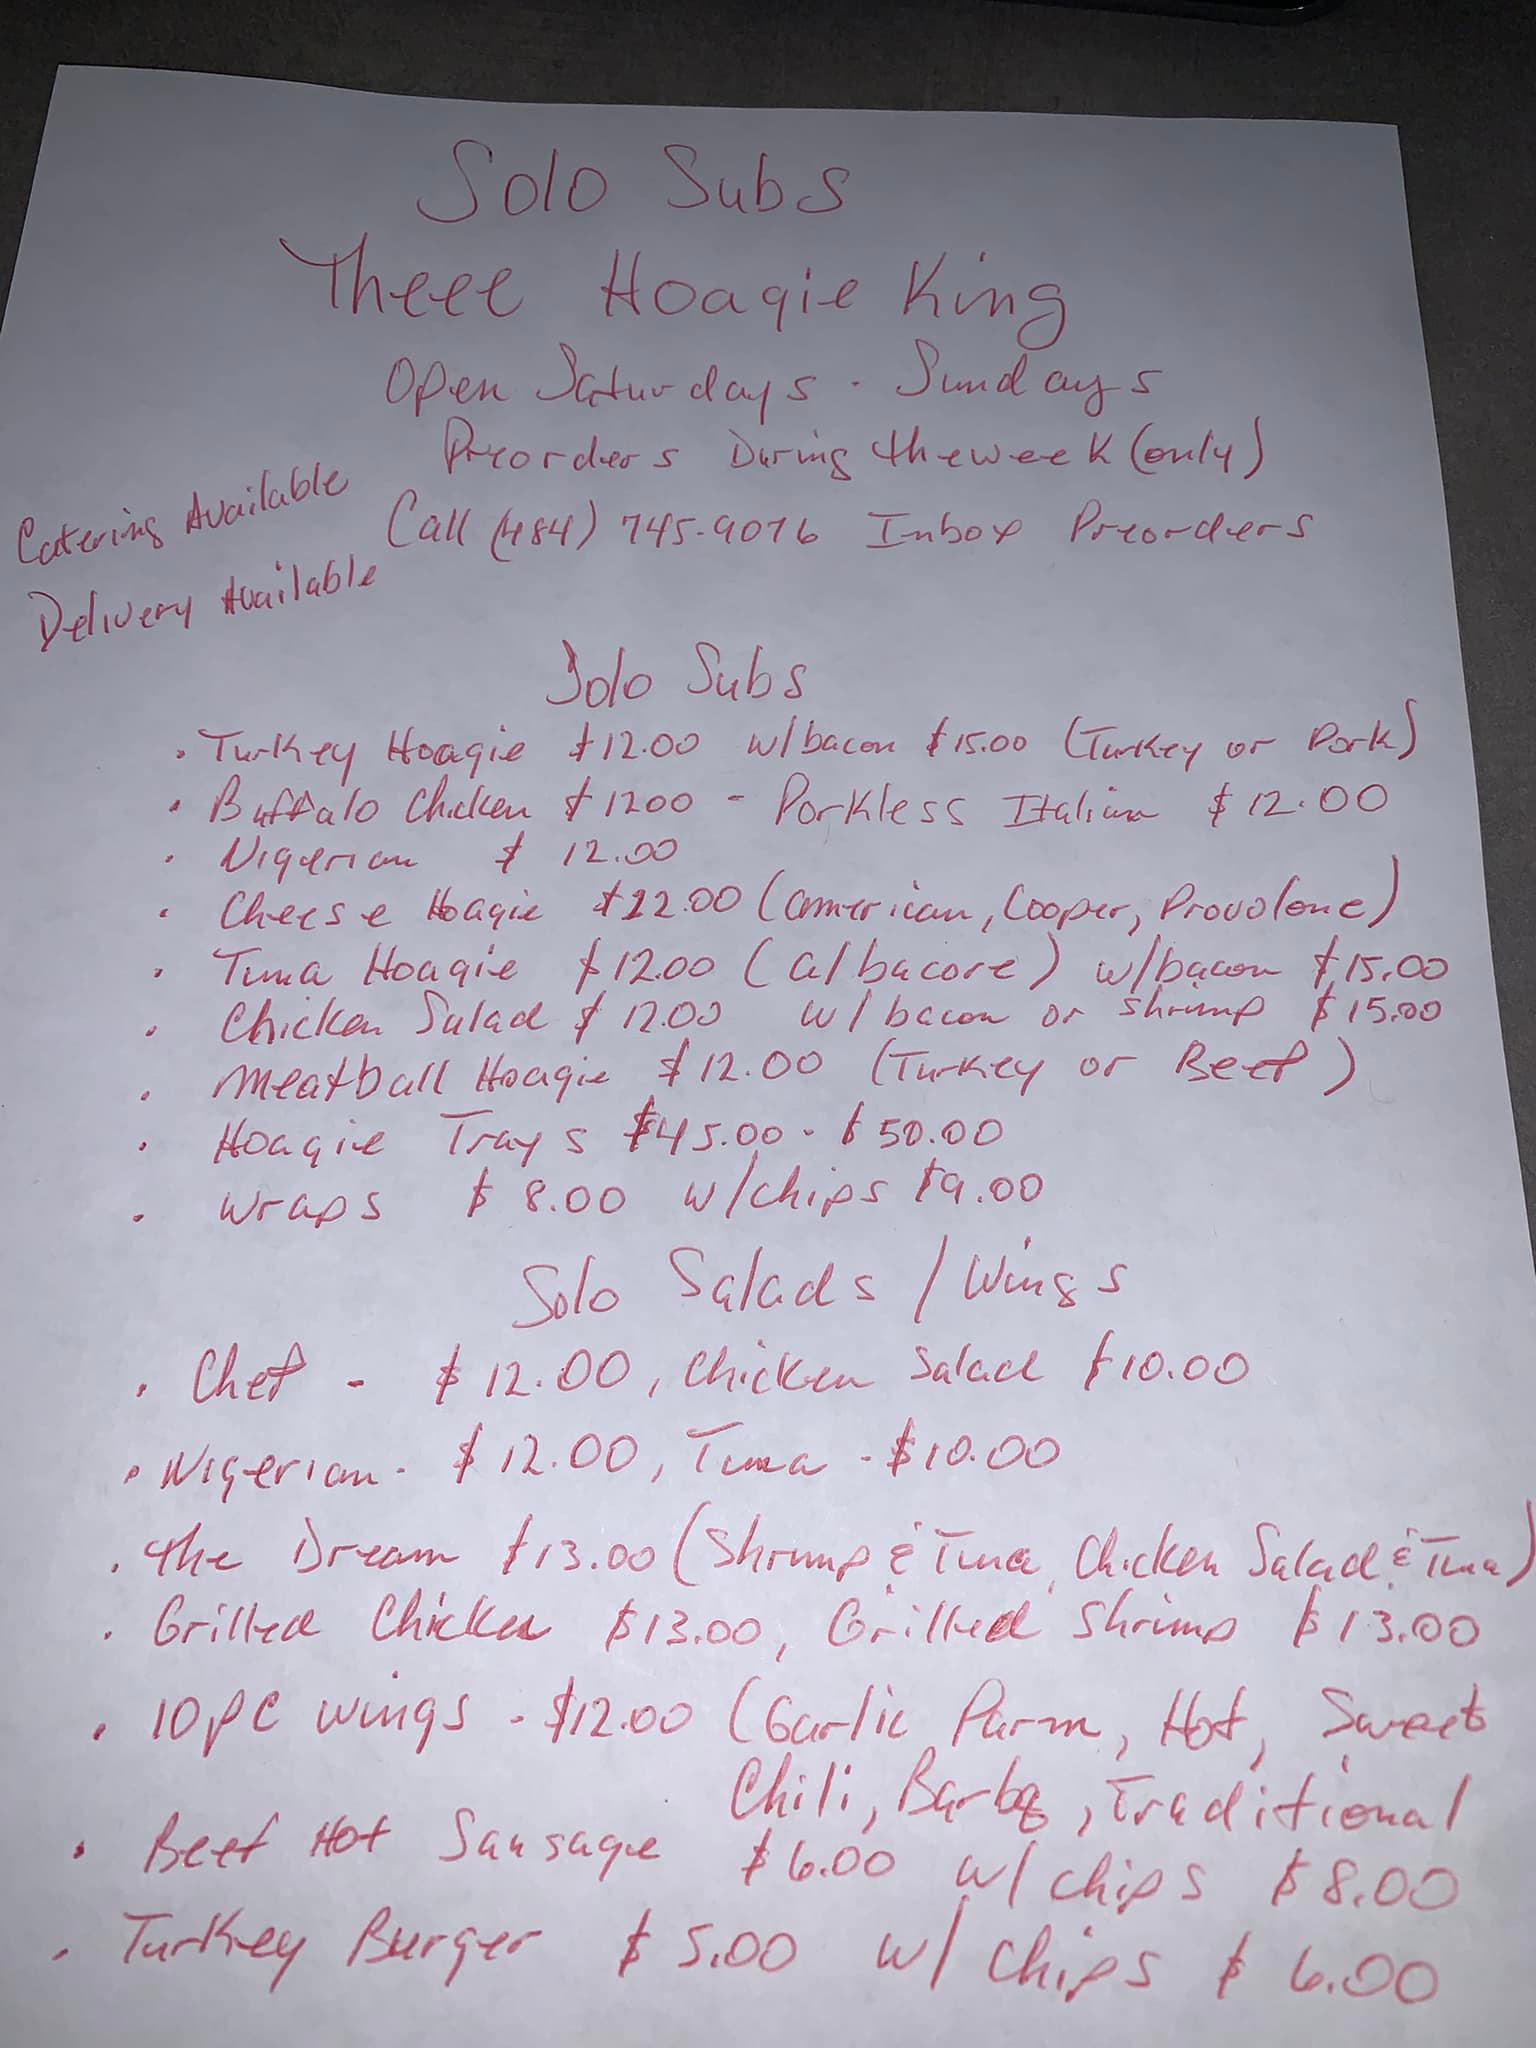 Solo Subs
Theee Hoagie King
Open Saturdays - Sundays
Preorders During the week (only)
Catering Available
Call (484) 745-9076 Inbox Preorders
Delivery Available
Solo Subs
• Turkey Hoagie $12.00 w/bacon $15.00 (Turkey or Pork)
• Buffalo Chicken $1200 - Porkless Italian $12.00
• Nigerian $12.00
• Cheese Hoagie $12.00 (American, Cooper, Provolone)
• Tuna Hoagie $12.00 (albacore) w/bacon $15.00
• Chicken Salad $12.00 w/bacon or shrimp $15.00
• Meatball Hoagie $12.00 (Turkey or Beef)
• Hoagie Trays $45.00 - $50.00
• Wraps $8.00 w/chips $9.00
Solo Salads / Wings
• Chef - $12.00, Chicken Salad $10.00
• Nigerian - $12.00, Tuna - $10.00
• The Dream $13.00 (Shrimp & Tuna, Chicken Salad & Tuna)
• Grilled Chicken $13.00, Grilled Shrimp $13.00
• 10pc wings - $12.00 (Garlic Parm, Hot, Sweet
Chili, Barbq, Traditional
• Beef Hot Sausage $6.00 w/ chips $8.00
• Turkey Burger $5.00 w/ chips $6.00